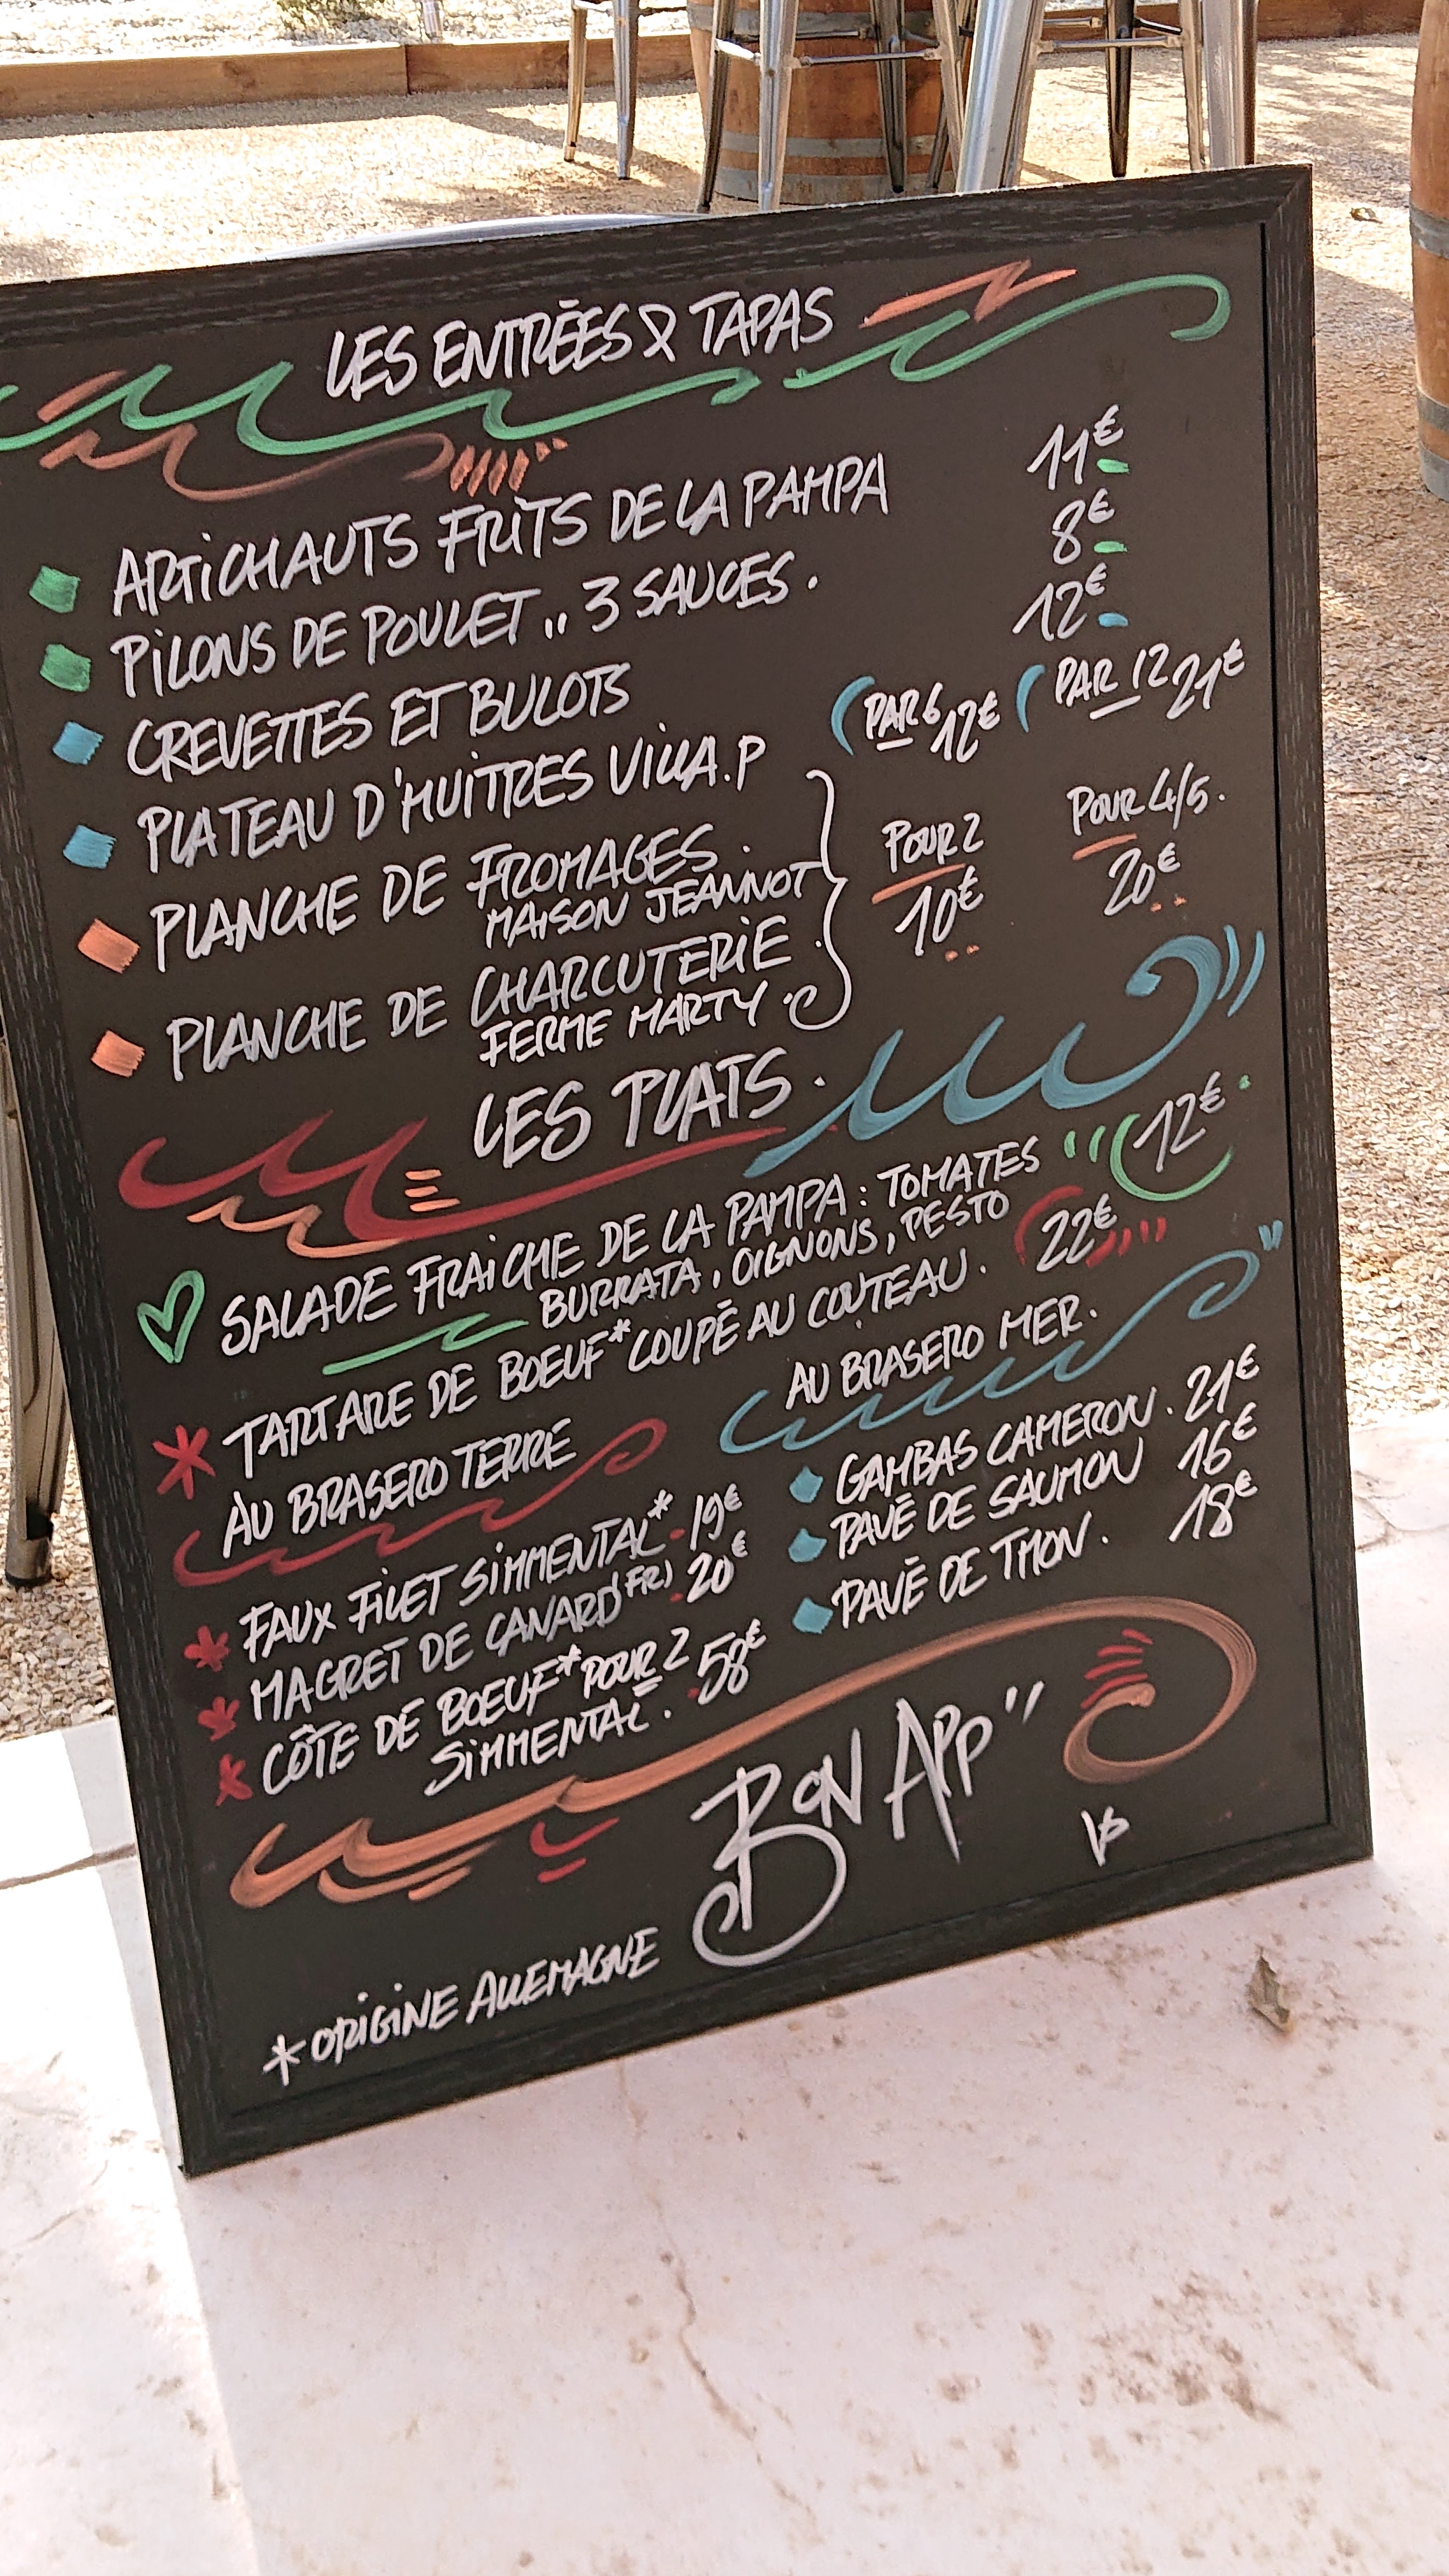 LES ENTRÉES & TAPAS
ARTICHAUTS FRITS DE LA PAMPA 11€
PILONS DE POULET .. 3 SAUCES . 8€
CREVETTES ET BULOTS 12€
PLATEAU D'HUITRES VILLA.P (PAR 6 12€ (PAR 12 21€
PLANCHE DE FROMAGES .
MAISON JEANNOT
PLANCHE DE CHARCUTERIE .
FERME MARTY .
POUR 2 POUR 4/5.
10€ 20€
LES PLATS .
SALADE FRAICHE DE LA PAMPA : TOMATES 12€
BURRATA, OIGNONS, PESTO
TARTARE DE BOEUF* COUPÉ AU COUTEAU . 22€
AU BRASERO TERRE
FAUX FILET SIMMENTAL* 19€
MAGRET DE CANARD (FR) 20€
CÔTE DE BOEUF* POUR 2
SIMMENTAL . 58€
AU BRASERO MER .
GAMBAS CAMERON . 21€
PAVÉ DE SAUMON 16€
PAVÉ DE THON . 18€
BON APP"
*ORIGINE ALLEMAGNE